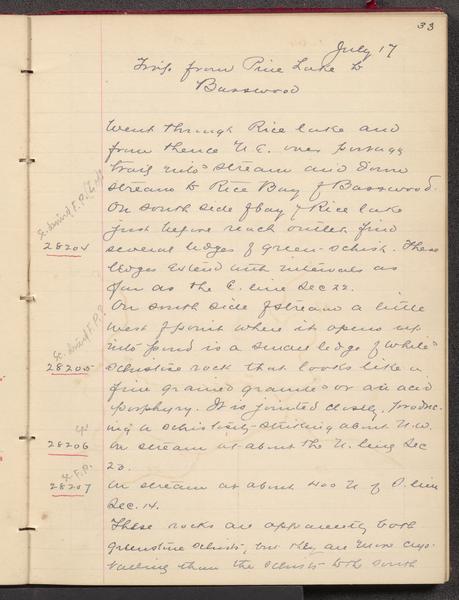 33
July 17
Trip from Pine Lake to
Basswood
Went through Rice lake and
from thence N.E. over portage
trail into stream and down
stream to Rice Bay of Basswood.
On south side of bay of Rice lake
just before reach outlet find
28204
several ledges of green-schist. These
ledges extend with intervals as
far as the E. line Sec 22.
On south side of stream a little
west of point where it opens up
into pond is a small ledge of white
28205
schistose rock that looks like a
fine grained granite or an acid
porphyry. It is jointed closely, produc-
ing a schistosity striking about N.W.
28206
On stream at about the N. line Sec
23.
28207
On stream at about 400 N of S. line
Sec. 14.
These rocks are apparently both
greenstone schists, but they are more crys-
talline than the schists to the south